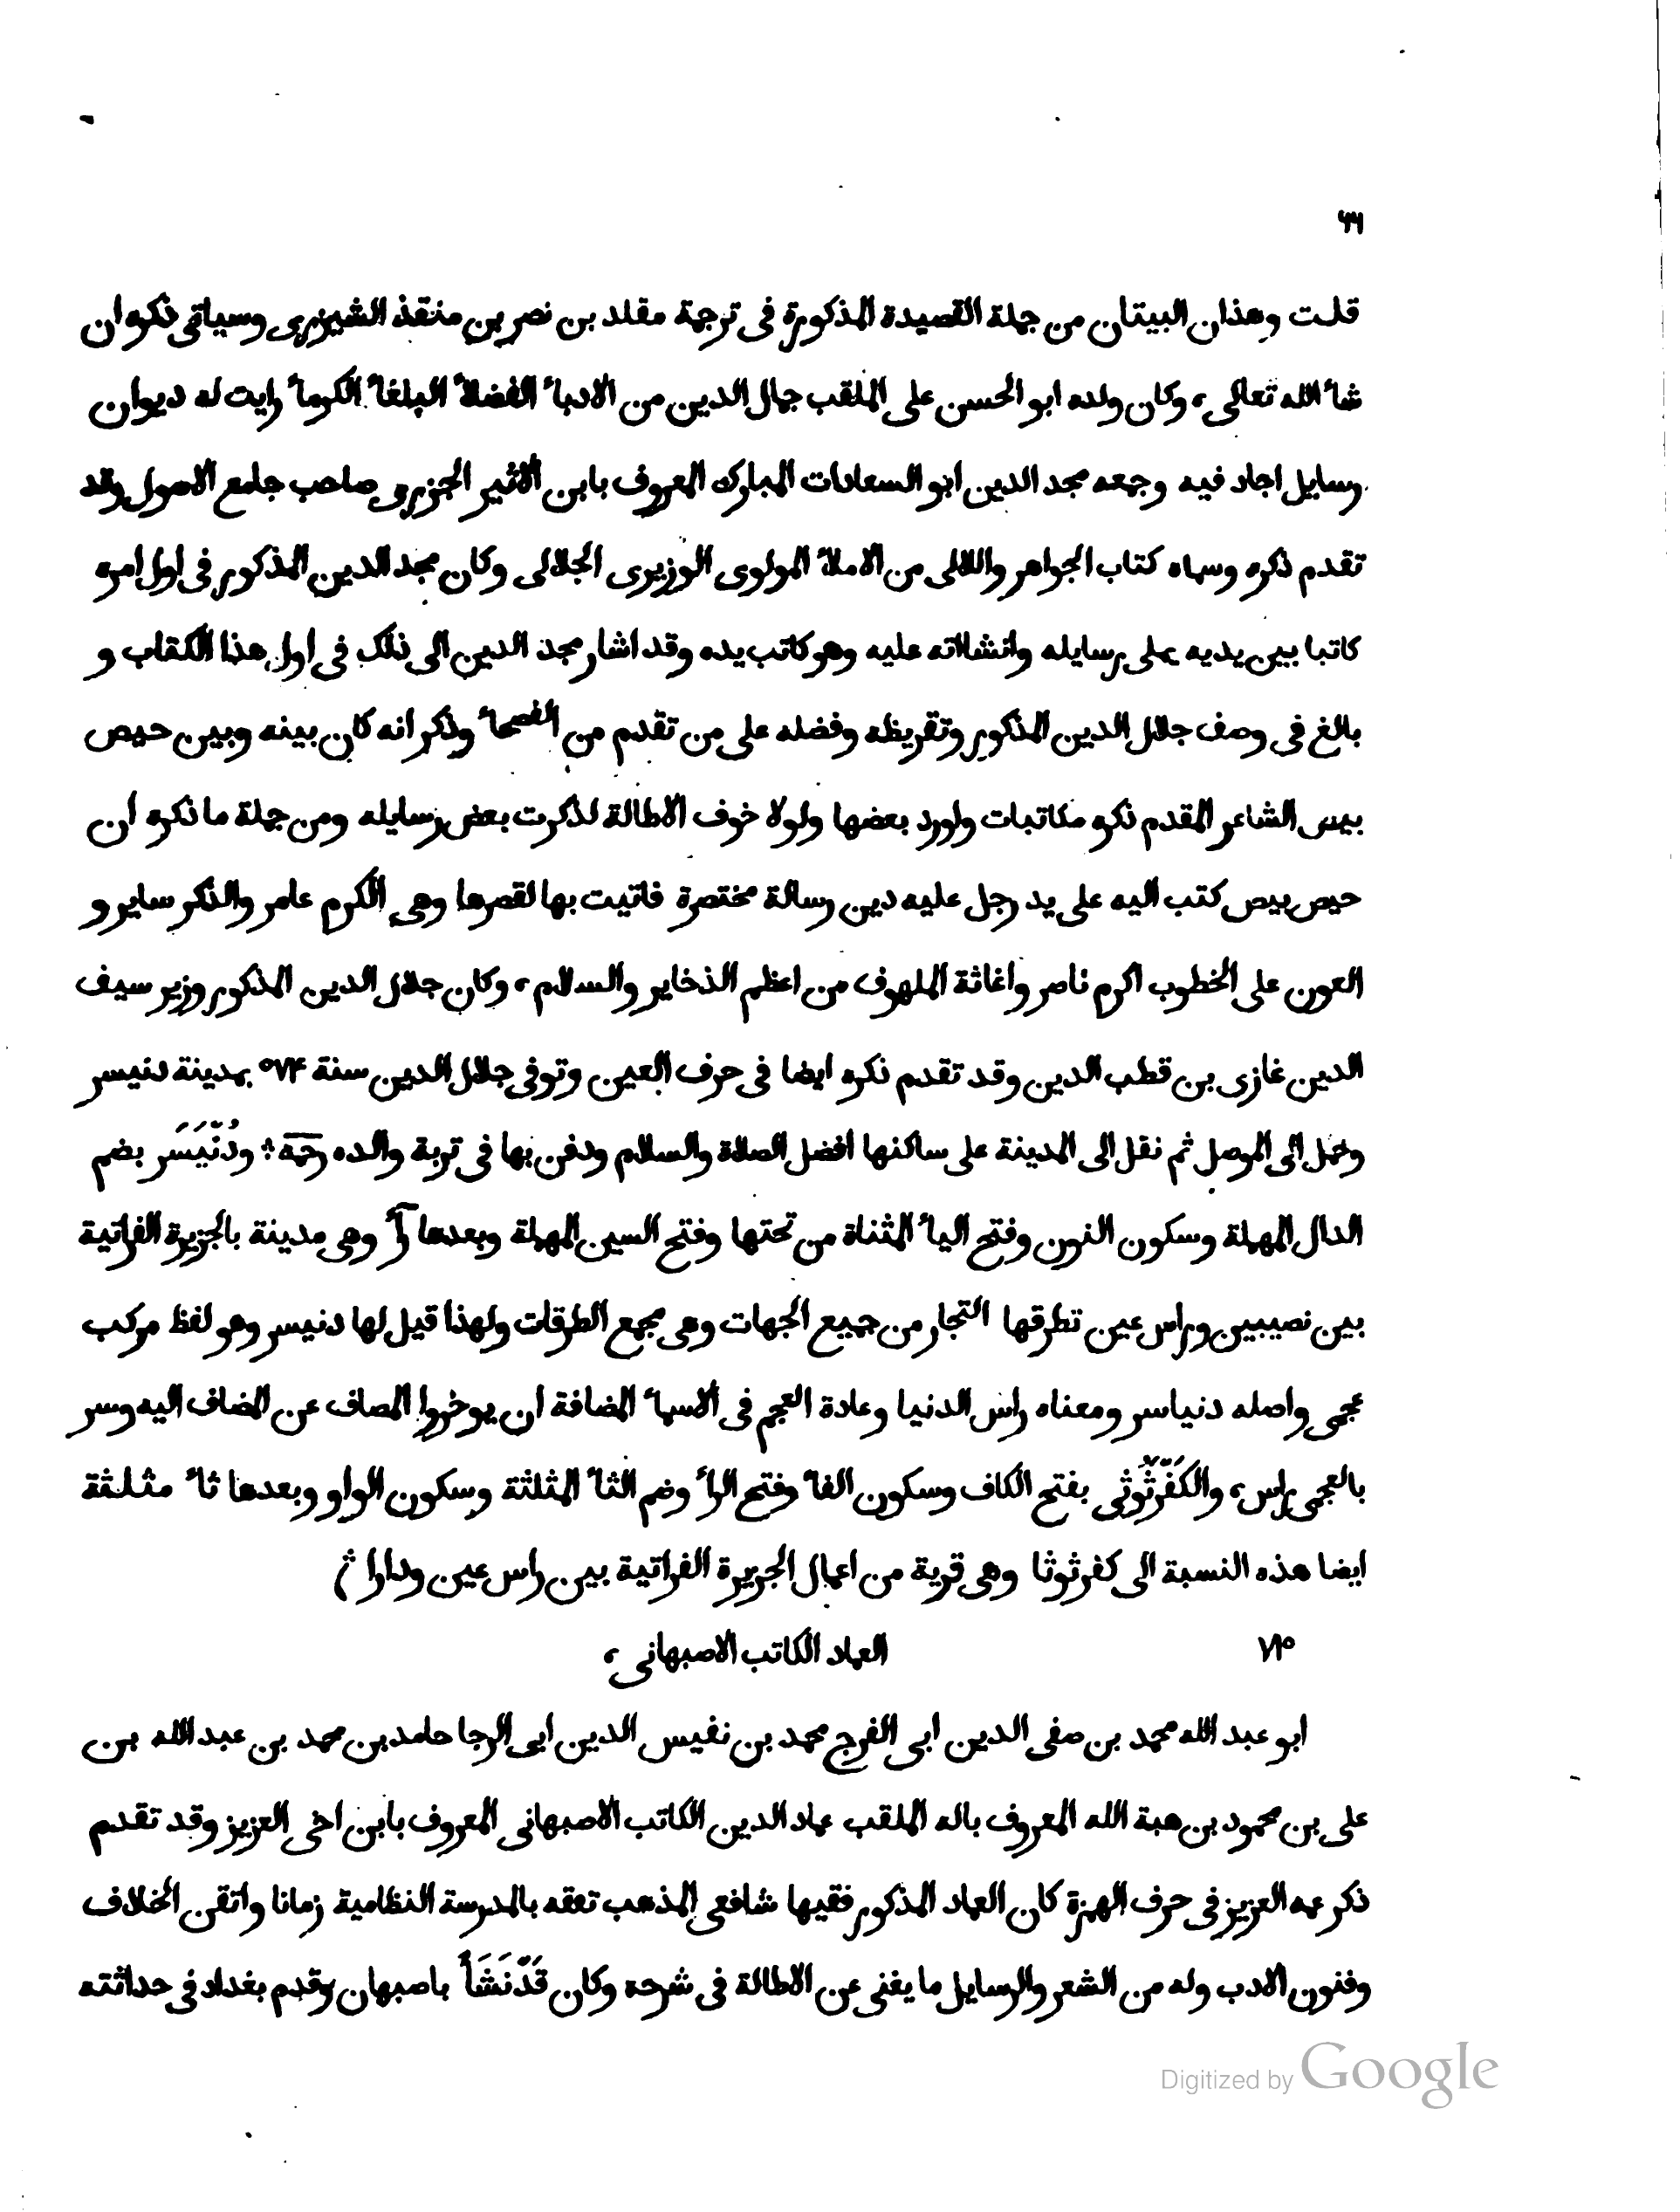 ٦٦
قلت وهذان البيتان من جملة القصيدة المذكورة فى ترجمة مقلد بن نصر بن منقذ الشيزرى وسياتى ذكره ان
شاء الله تعالى، وكان ولده ابو الحسن على الملقب جمال الدين من الادباء الفضلاء البلغاء الكرماء رايت له ديوان
رسايل اجاد فيه وجمعه مجد الدين ابو السعادات المبارك المعروف بابن الاثير الجزرى صاحب جامع الاصول وقد
تقدم ذكره وسماه كتاب الجواهر واللالى من الاملاء المولوى الوزيرى الجلالى وكان مجد الدين المذكور فى اول امره
كاتبا بين يديه يملى رسايله وانشااته عليه وهو كاتب يده وقد اشار مجد الدين الى ذلك فى اول هذا الكتاب و
بالغ فى وصف جلال الدين المذكور وتقريظه وفضله على من تقدم من الفصحاء وذكر انه كان بينه وبين حيص
بيص الشاعر المقدم ذكره مكاتبات واورد بعضها ولولا خوف الاطالة لذكرت بعض رسايله ومن جملة ما ذكره ان
حيص بيص كتب اليه على يد رجل عليه دين رسالة مختصرة فاتيت بها لقصرها وهى الكرم عامر والذكر ساير و
العون على الخطوب اكرم ناصر واغاثة الملهوف من اعظم الذخاير والسلام، وكان جلال الدين المذكور وزير سيف
الدين غازى بن قطب الدين وقد تقدم ذكره ايضا فى حرف العين وتوفى جلال الدين سنة ٥٧۴ بمدينة دنيسر
وحمل الى الموصل ثم نقل الى المدينة على ساكنها افضل الصلاة والسلام ودفن بها فى تربة والده رحمة؛ ودُنَيْسَر بضم
الدال المهملة وسكون النون وفتح الياء المثناة من تحتها وفتح السين المهملة وبعدها رآء وهى مدينة بالجزيرة الفراتية
بين نصيبين وراس عين تطرقها التجار من جميع الجهات وهى مجمع الطرقات ولهذا قيل لها دنيسر وهو لفظ مركب
عجمى واصله دنياسر ومعناه راس الدنيا وعادة العجم فى الاسماء المضافة ان يوخروا المضاف عن المضاف اليه وسر
بالعجمى راس، والكَفَرْثُوثى بفتح الكاف وسكون الفاء وفتح الراء وضم الثاء المثلثة وسكون الواو وبعدها ثاء مثلثة
ايضا هذه النسبة الى كفرثوثا وهى قرية من اعمال الجريرة الفراتية بين راس عين ودارا ؞
٧١٥ العماد الكاتب الاصبهانى،
ابو عبد الله محمد بن صفى الدين ابى الفرج محمد بن نفيس الدين ابى الرجا حامد بن محمد بن عبد الله بن
على بن محمود بن هبة الله المعروف باله الملقب عماد الدين الكاتب الاصبهانى المعروف بابن اخى العزيز وقد تقدم
ذكر عمه العزيز فى حرف الهمزة كان العماد المذكور فقيها شافعى المذهب تفقه بالمدرسة النظامية زمانا واتقن الخلاف
وفنون الادب وله من الشعر والرسايل ما يغنى عن الاطالة فى شرحه وكان قَدْنَشَأَ باصبهان وقدم بغداد فى حداثته
Digitized by Google